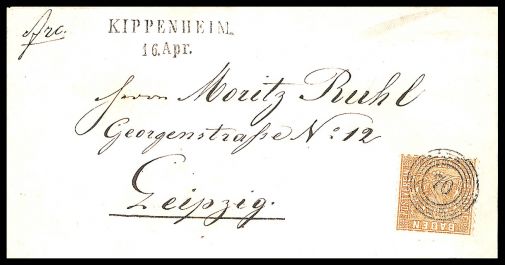 frc.
KIPPENHEIM.
16. Apr.
Herrn Moritz Ruhl
Georgenstraße No. 12
Leipzig.
70
BADEN